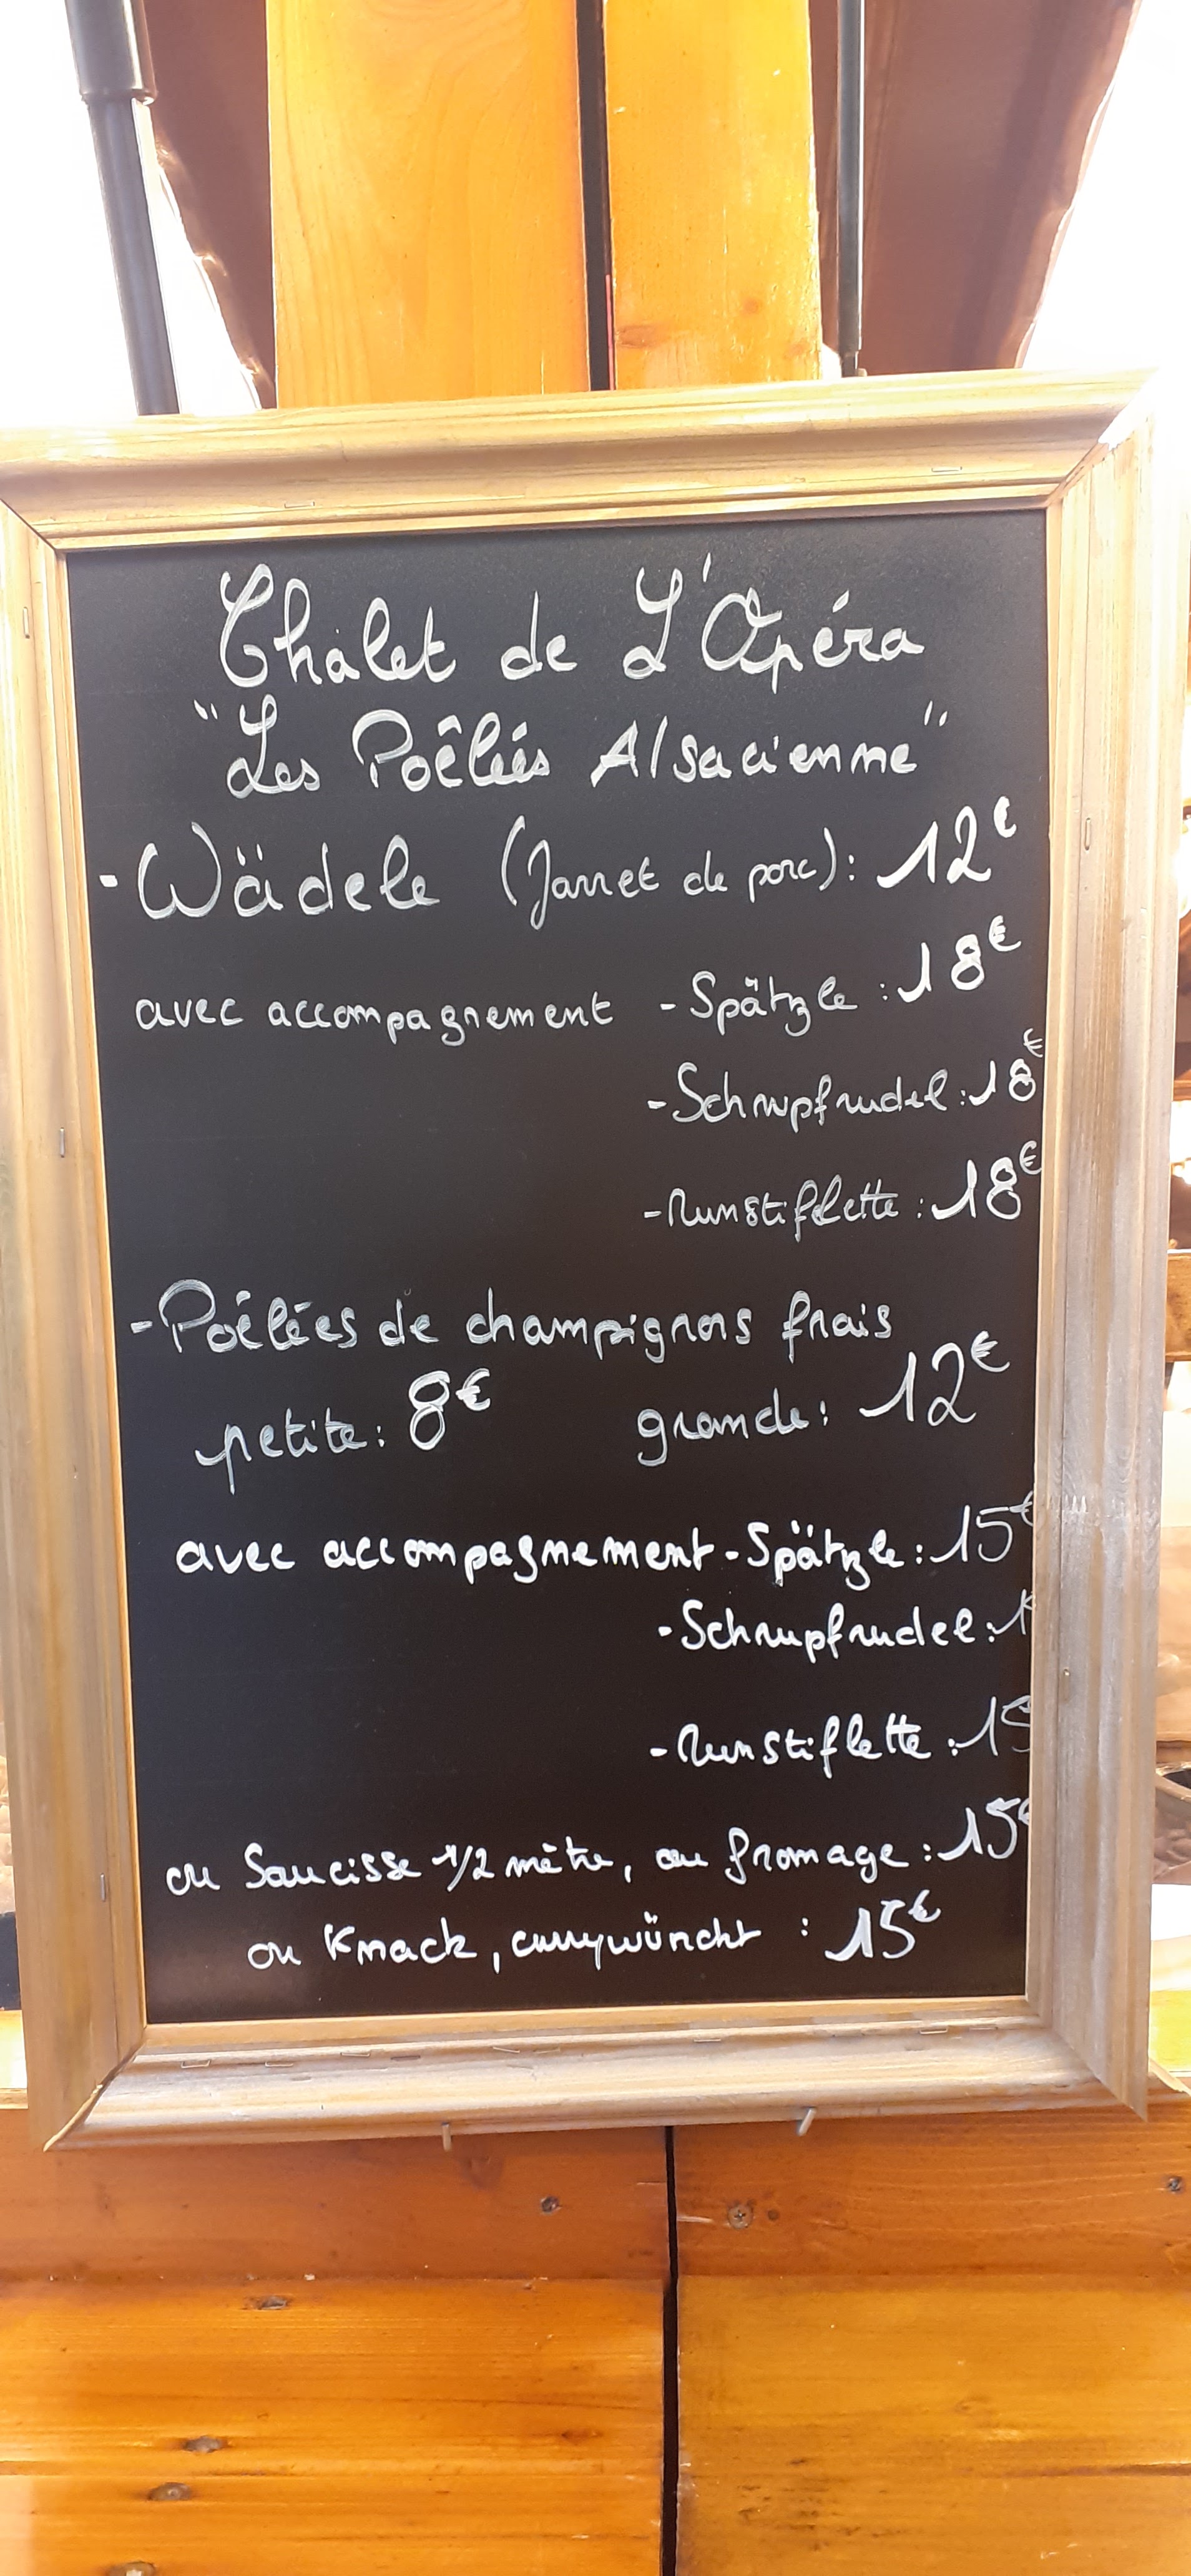 Chalet de L'Opéra
"Les Poêlées Alsacienne"
- Wädele (Jarret de porc) : 12€
avec accompagnement - Spätzle : 18€
- Schnupfnudel : 18€
- Munstiflette : 18€
- Poêlées de champignons frais
petite : 8€ grande : 12€
avec accompagnement - Spätzle : 15€
- Schnupfnudel :
- Munstiflette : 15
ou Saucisse 1/2 mètre, ou fromage : 15€
ou Knack, currywürscht : 15€